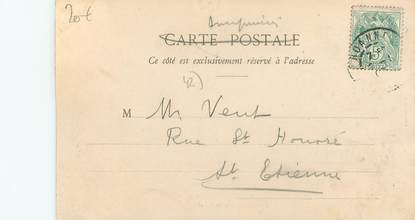 20€
CARTE POSTALE
Ce côté est exclusivement réservé à l'adresse
42)
M Mr Vent
Rue St Honoré
St Etienne
ROANNE
5